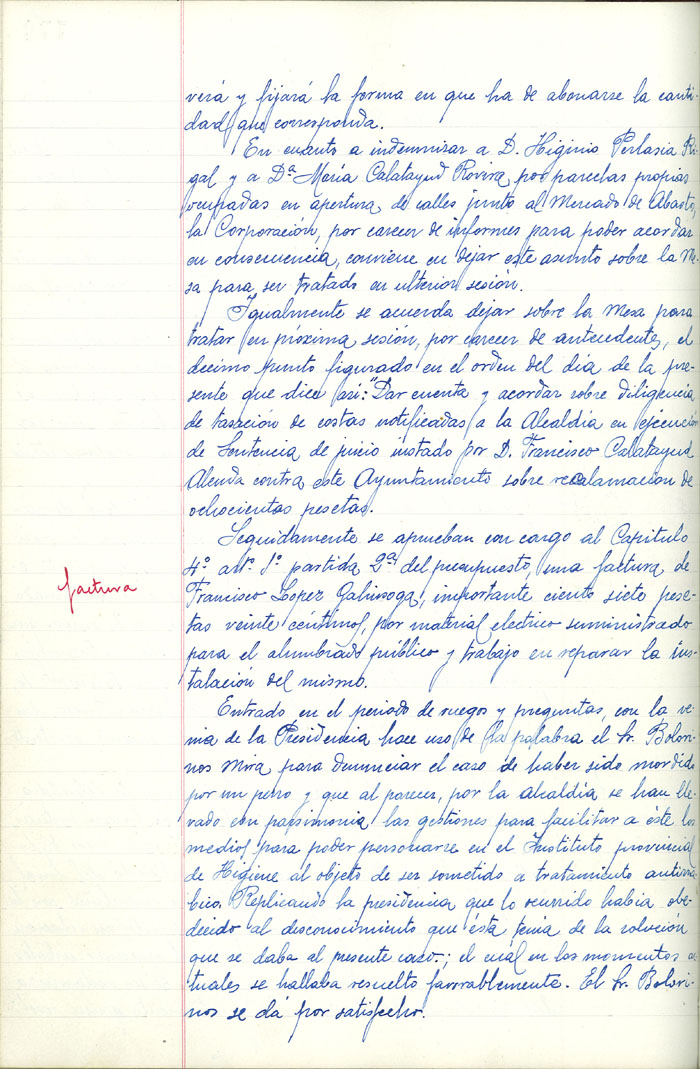 verá y fijará la forma en que ha de abonarse la canti-
dad que corresponda.
En cuanto a indemnizar a D. Higinio Perlasia Ri-
gal y a Dª María Calatayud Rovira por parcelas propias
ocupadas en apertura de calles junto al Mercado de Abastos,
la Corporación, por carecer de informes para poder acordar
en consecuencia, conviene en dejar este asunto sobre la Me-
sa para ser tratado en ulterior sesión.
Igualmente se acuerda dejar sobre la Mesa para
tratar en próxima sesión, por carecer de antecedentes, el
décimo punto figurado en el orden del día de la pre-
sente que dice así: "Dar cuenta y acordar sobre diligencia
de tasación de costas notificadas a la Alcaldía en ejecución
de Sentencia de juicio instado por D. Francisco Calatayud
Alenda contra este Ayuntamiento sobre reclamación de
ochocientas pesetas.
Seguidamente se aprueban con cargo al Capitulo
4º artº 1º partida 2ª del presupuesto, una factura de
factura
Francisco Lopez Galinsoga, importante ciento siete pese-
tas veinte céntimos, por material electrico suministrado
para el alumbrado público y trabajo en reparar la ins-
talación del mismo.
Entrado en el periodo de ruegos y preguntas, con la ve-
nia de la Presidencia hace uso de la palabra el Sr. Bolori-
nos Mira para denunciar el caso de haber sido mordido
por un perro y que al parecer, por la alcaldía se han lle-
vado con parsimonia las gestiones para facilitar a éste los
medios para poder personarse en el Instituto provincial
de Higiene al objeto de ser sometido a tratamiento antirrá-
bico. Replicando la presidencia que lo ocurrido habia obe-
decido al desconocimiento que ésta tenia de la solución
que se daba al presente caso; el cuál en los momentos ac-
tuales se hallaba resuelto favorablemente. El Sr. Bolori-
nos se dá por satisfecho.